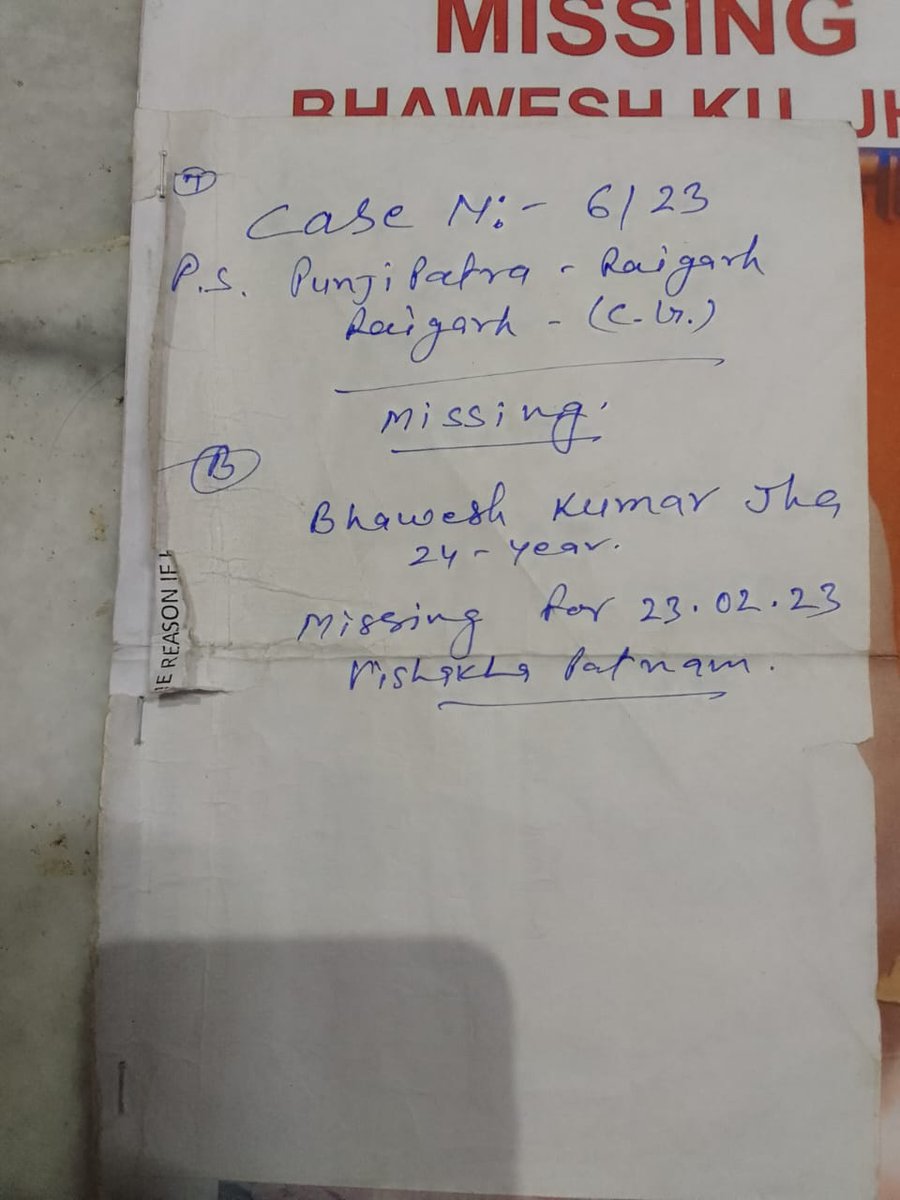 MISSING
BHAWESH KU. JH
Case N:- 6/23
P.S. Punjipatra - Raigarh
Raigarh - (C.G.)
Missing.
B
Bhawesh Kumar Jha
24-year.
Missing for 23.02.23
Vishakha Patnam.
E REASON IF